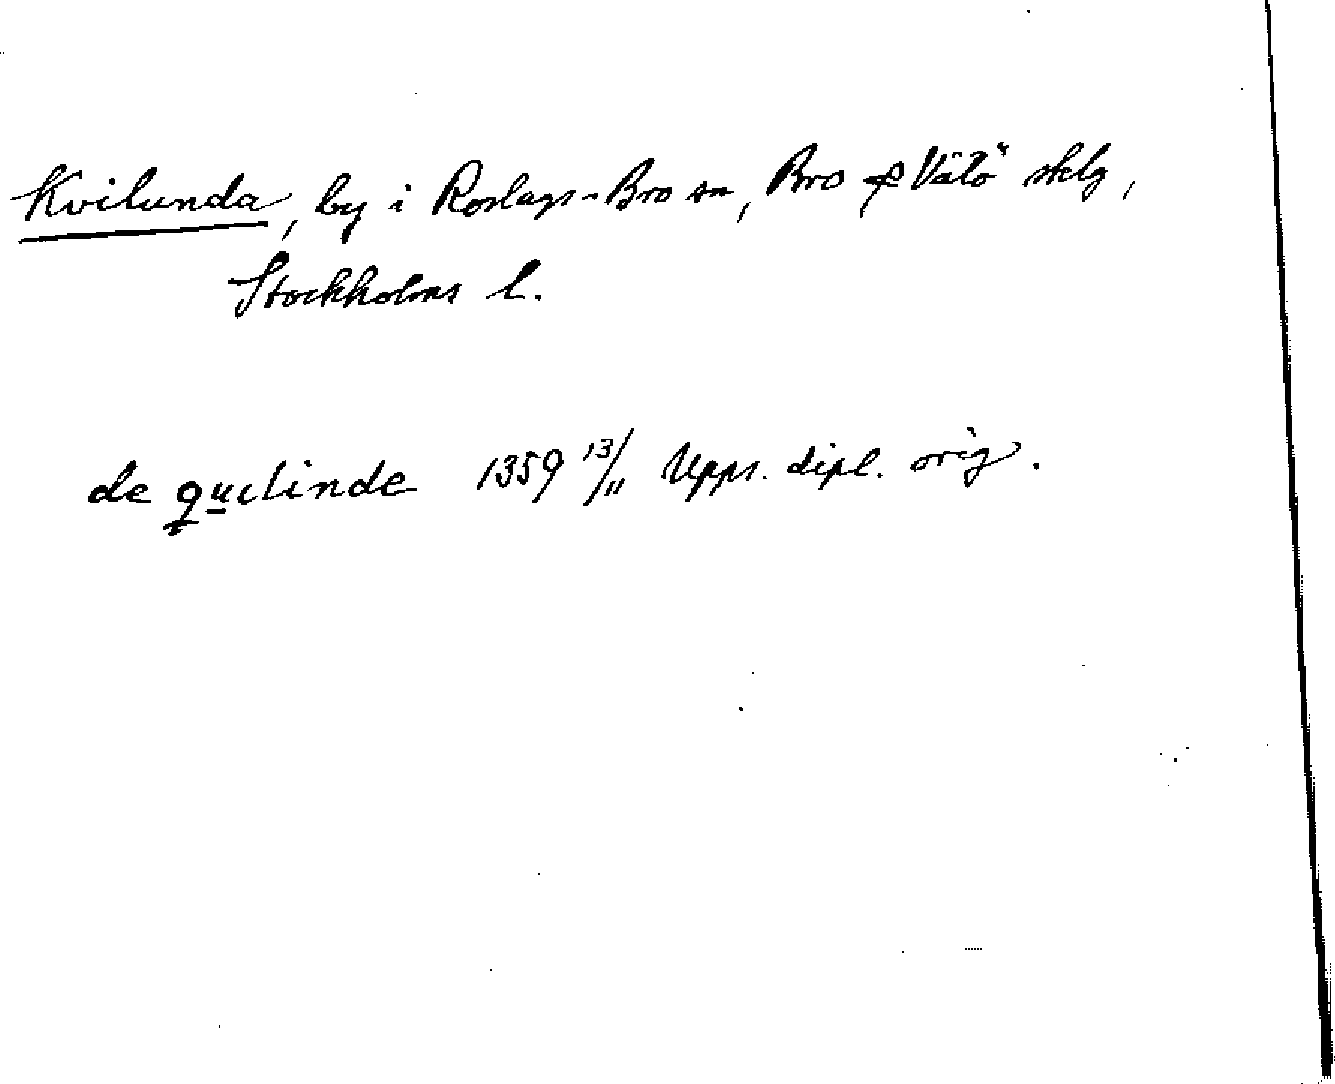 Kvilunda, by i Roslags-Bro sn, Bro & Vätö sklg,
Stockholms l.
de quelinde 1359 13/11 Upps. dipl. orig.